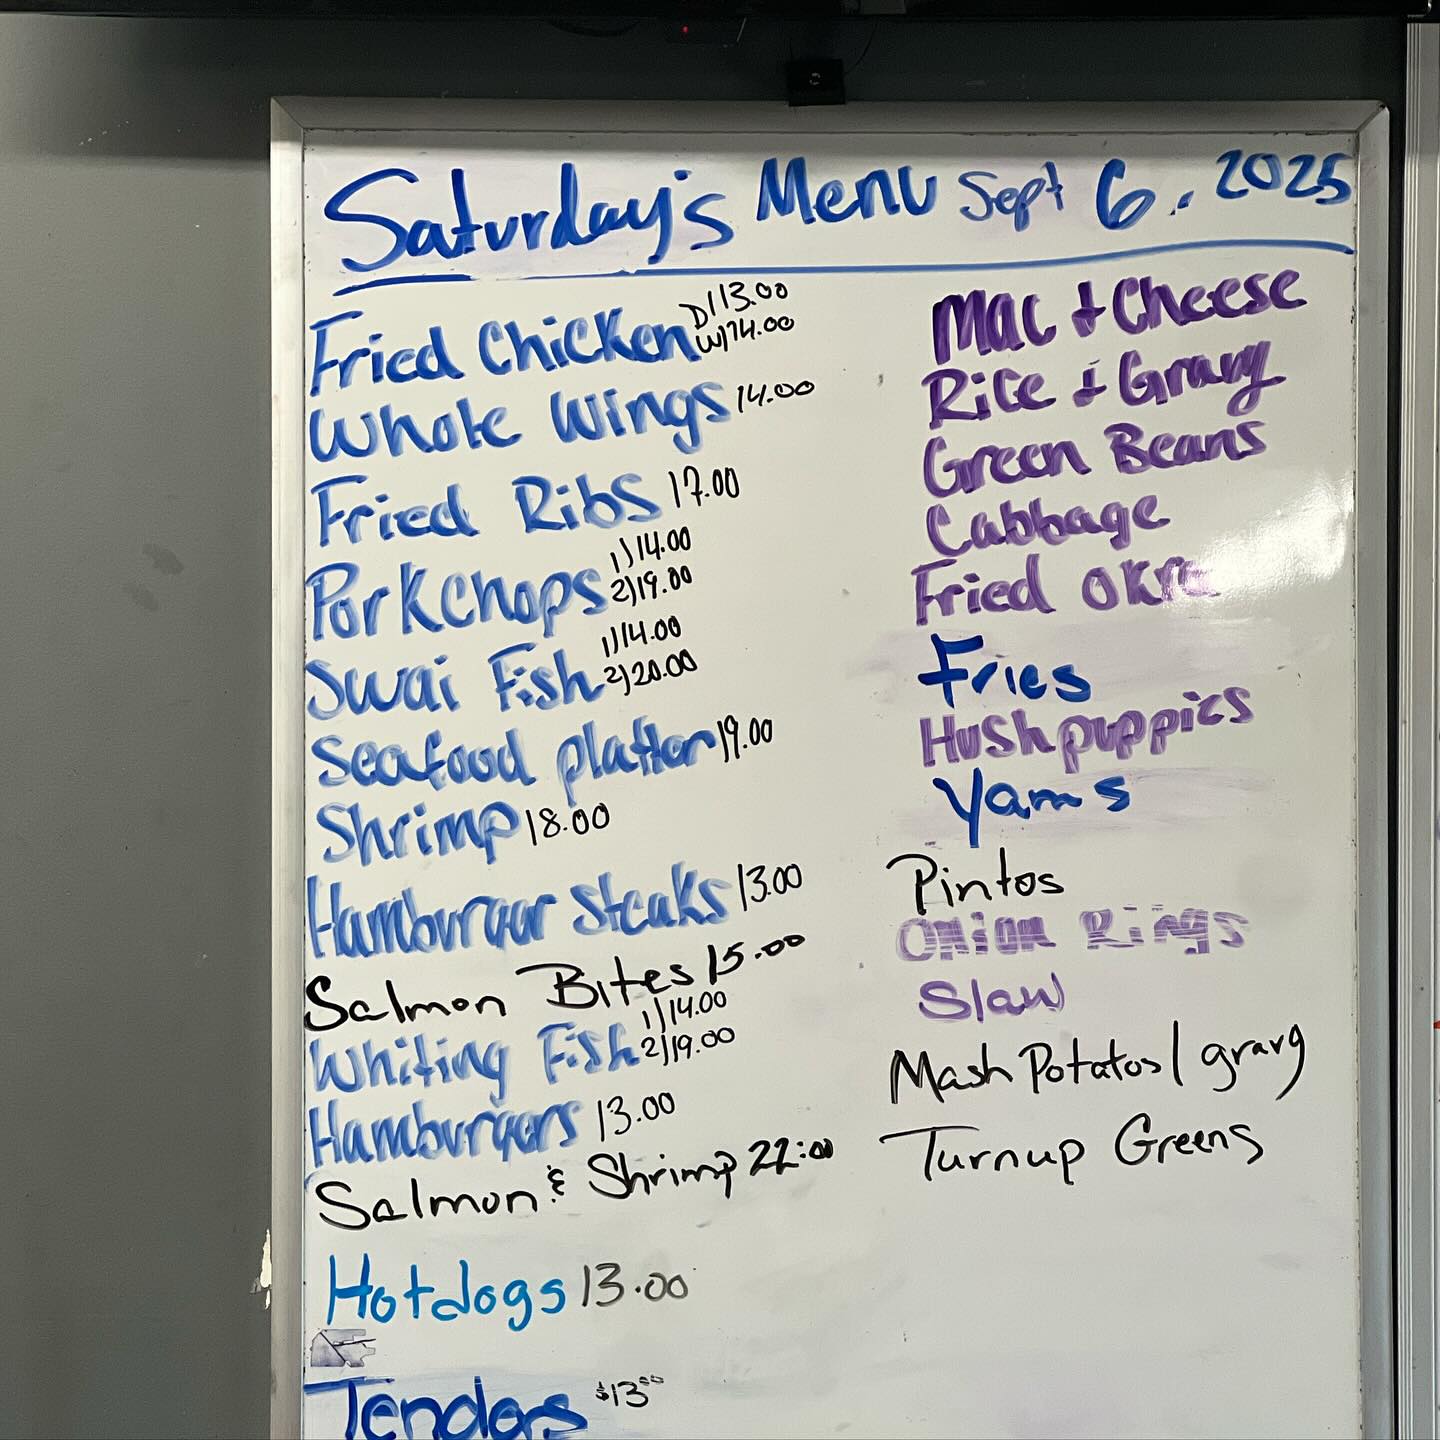 Saturday's Menu Sept 6, 2025
Fried Chicken D)13.00
W)14.00
Whole Wings 14.00
Fried Ribs 17.00
Pork Chops 1)14.00
2)19.00
Swai Fish 1)14.00
2)20.00
Seafood platter 19.00
Shrimp 18.00
Hamburger Steaks 13.00
Salmon Bites 15.00
Whiting Fish 1)14.00
2)19.00
Hamburgers 13.00
Salmon & Shrimp 22:00
Hotdogs 13.00
Tenders $13.00
Mac + Cheese
Rice + Gravy
Green Beans
Cabbage
Fried Okra
Fries
Hushpuppies
Yams
Pintos
Onion Rings
Slaw
Mash Potatos / gravy
Turnup Greens